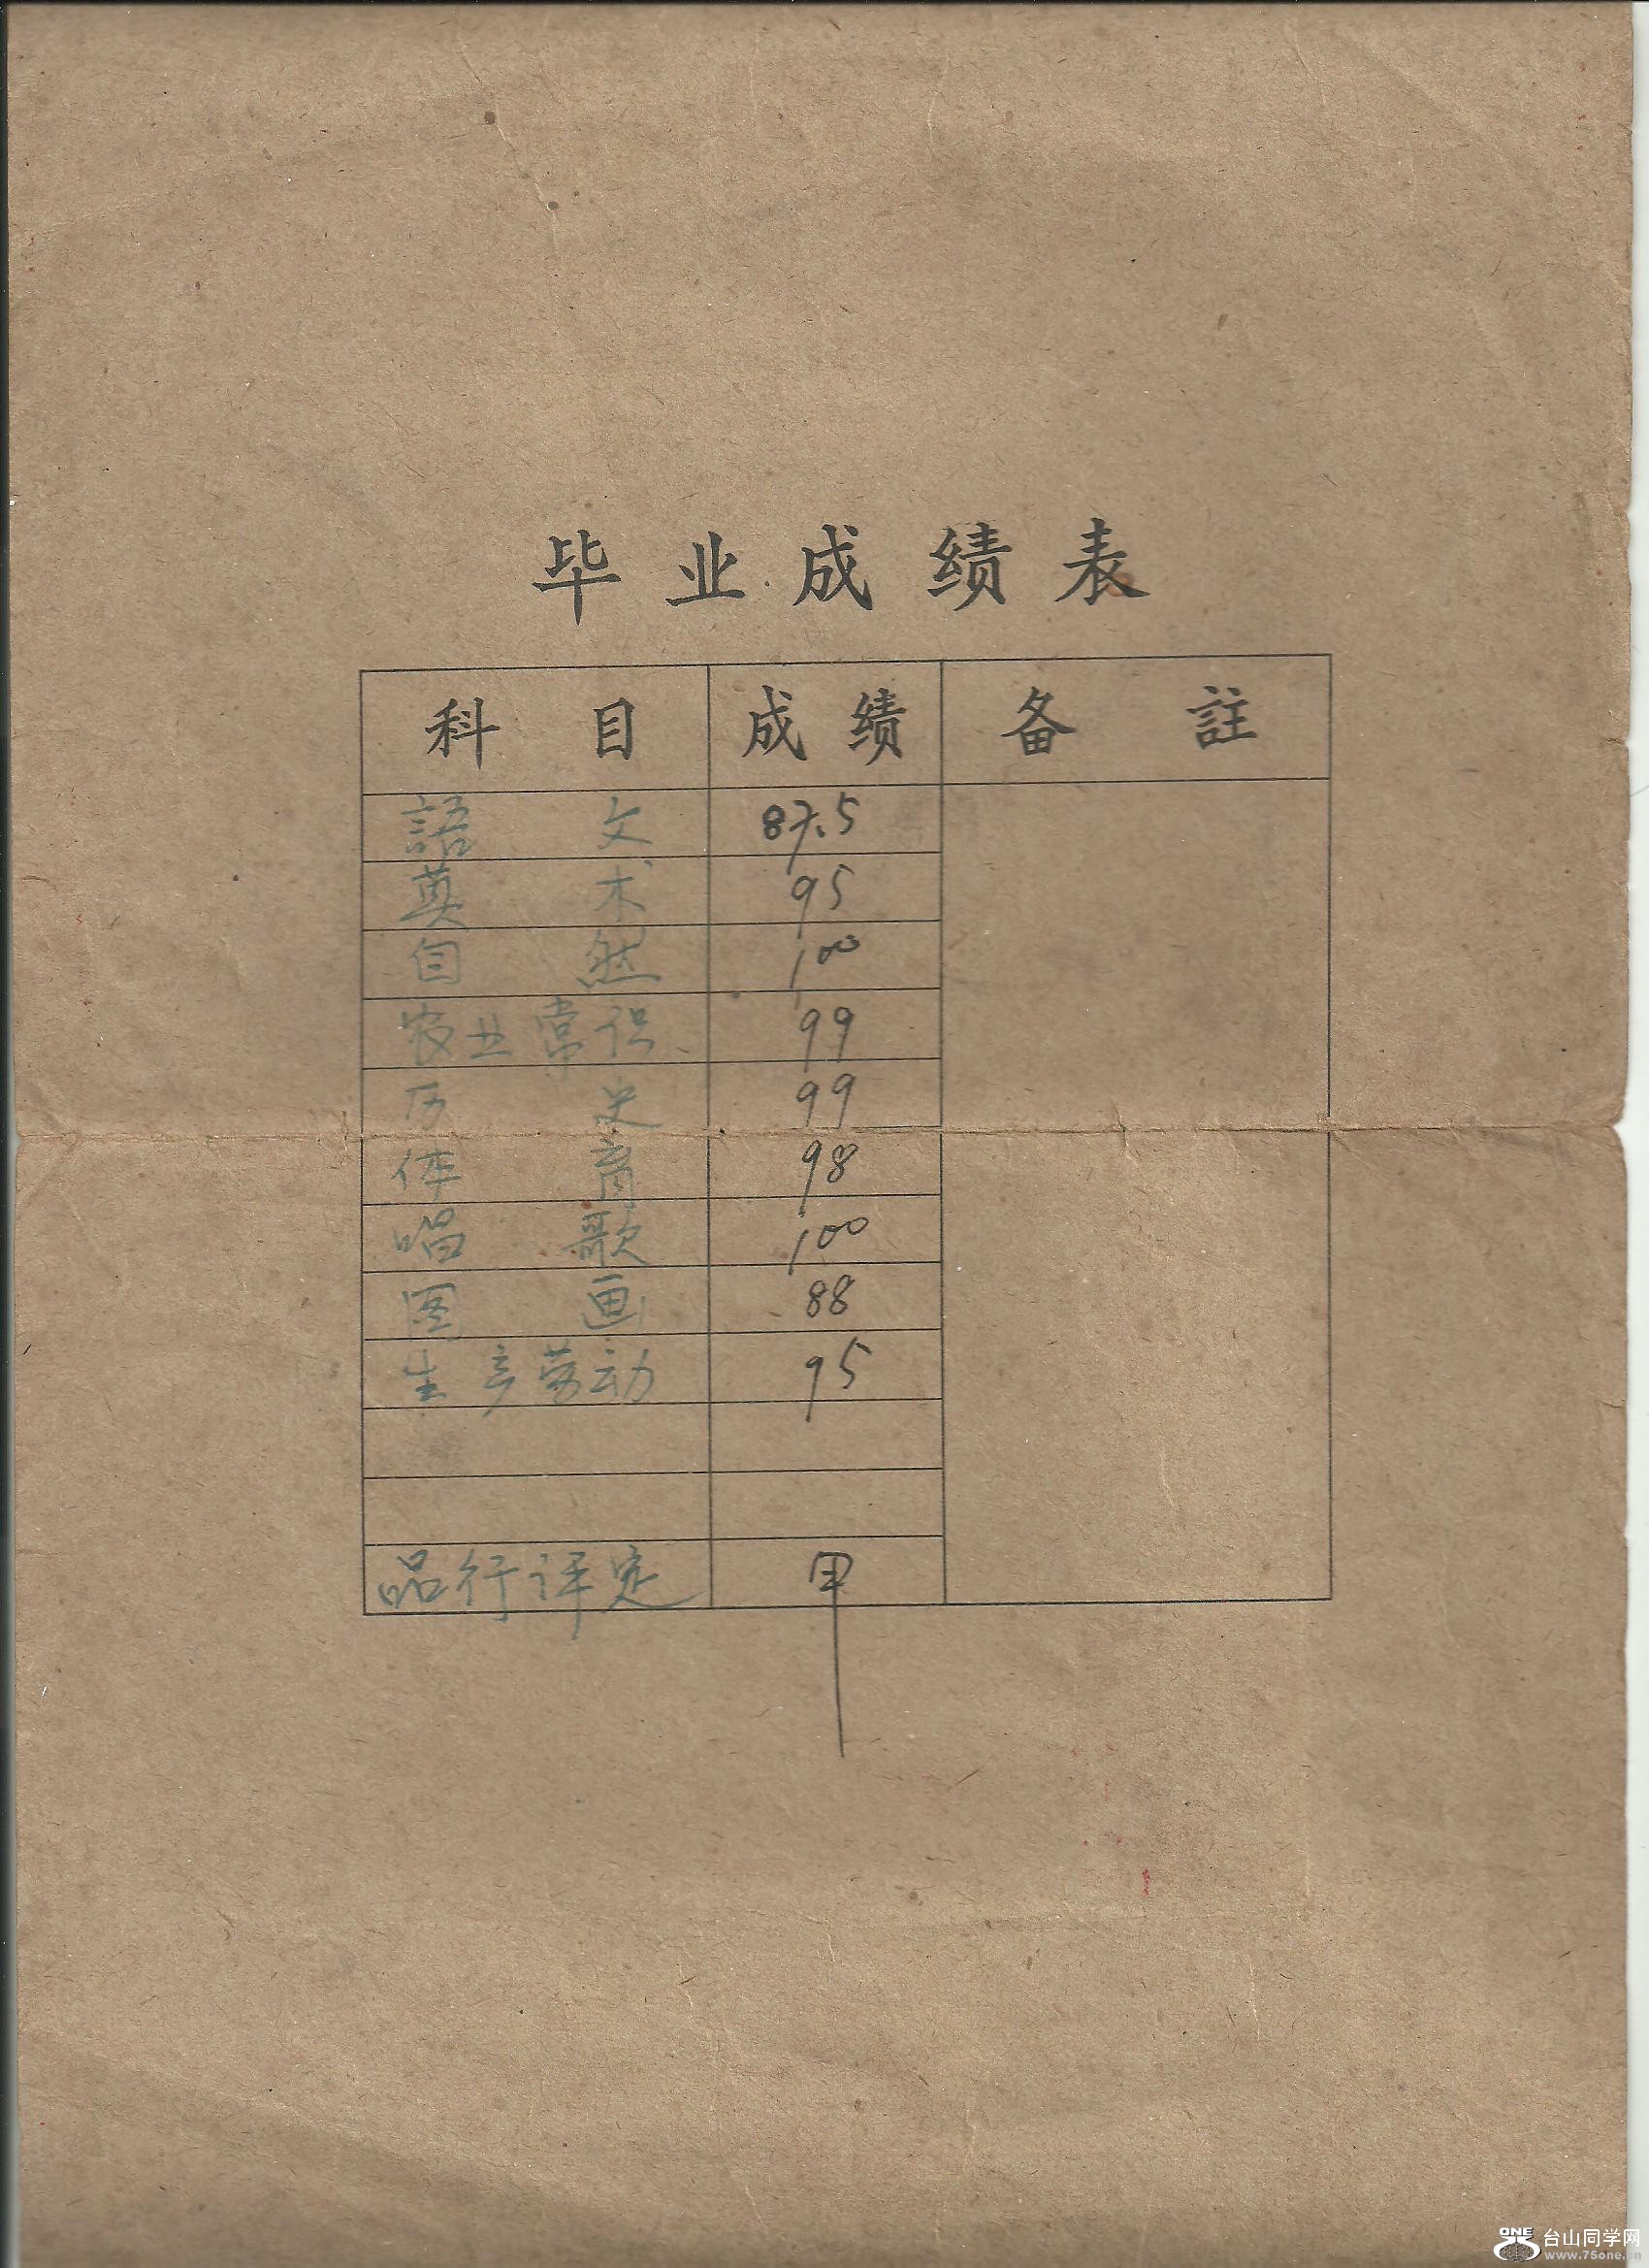 毕业成绩表
科目 成绩 备註
語文 87.5
算术 95
自然 100
农业常识 99
历史 99
体育 98
唱歌 100
图画 88
生产劳动 95
品行评定 甲
ONE 台山同学网
www.75one.cn